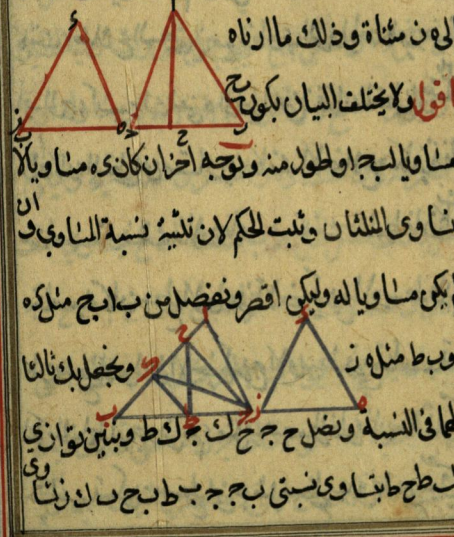 الى ه ن مثناة وذلك ما اردناه
اقول ولا يختلف البيان بكون
مساويا لـ ب ج او اطول منه وبوجه آخر ان كان ء ه مساويا لا
تساوى المثلثان وثبت الحكم لان تثنية نسبة المتساوى
يكن مساويا له وليكن اقصر ونفصل من ب ا ب ح مثل ء ه
و ب ط مثل ه ز ونجعل ب ك ثالثا
لهما فى النسبة ونصل ح ج ح ك ج ك ط وبين توازى
ك ط ح ط بتساوى نسبتى ب ج ب ط ب ح ب ك